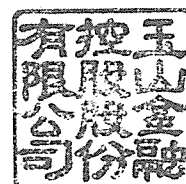 玉山金融
控股股份
有限公司